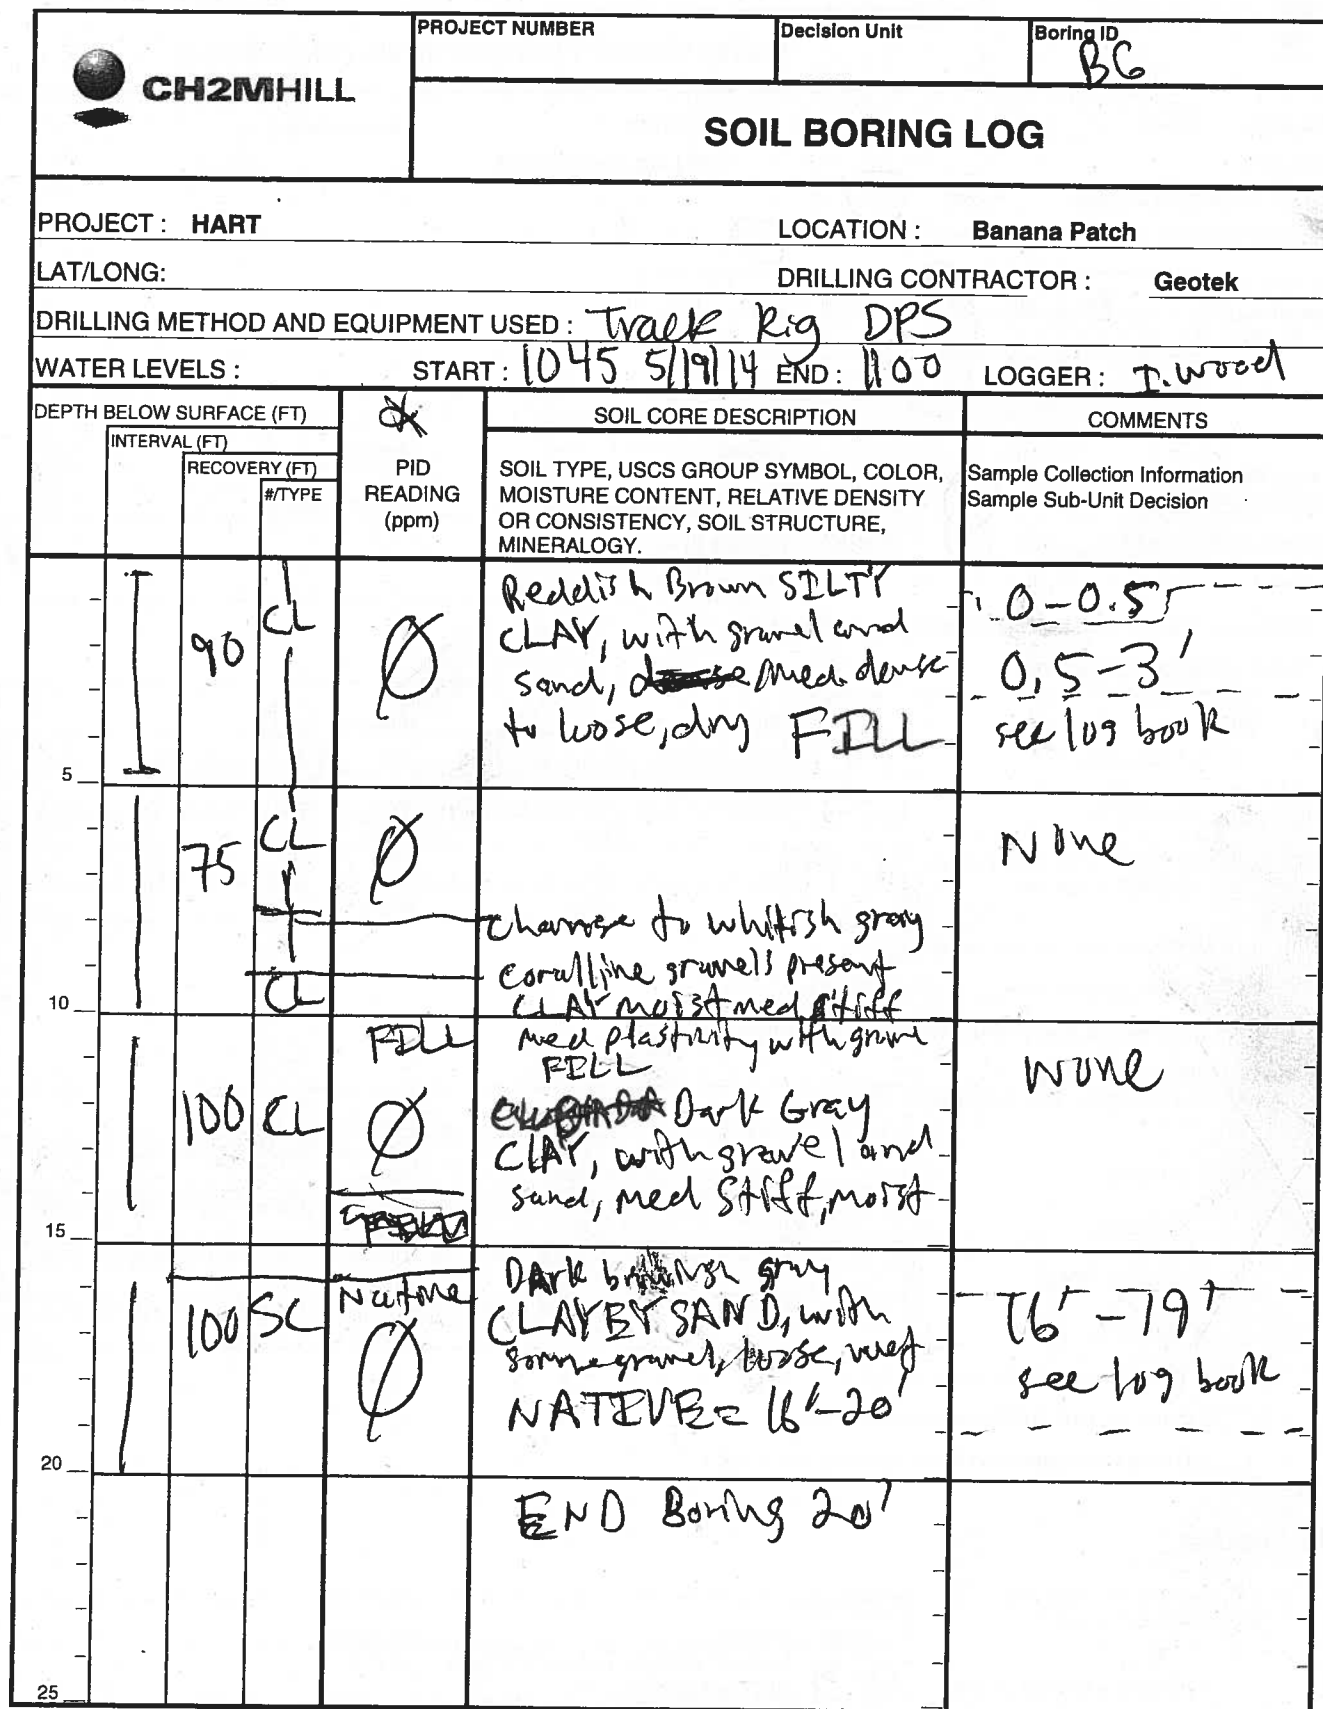 PROJECT NUMBER
Decision Unit
Boring ID
B6
CH2MHILL
SOIL BORING LOG
PROJECT : HART
LOCATION : Banana Patch
LAT/LONG:
DRILLING CONTRACTOR : Geotek
DRILLING METHOD AND EQUIPMENT USED : Track Rig DPS
WATER LEVELS :
START : 1045 5/19/14 END : 1100
LOGGER : I. Wood
DEPTH BELOW SURFACE (FT)
INTERVAL (FT)
RECOVERY (FT)
#/TYPE
PID
READING
(ppm)
SOIL CORE DESCRIPTION
SOIL TYPE, USCS GROUP SYMBOL, COLOR,
MOISTURE CONTENT, RELATIVE DENSITY
OR CONSISTENCY, SOIL STRUCTURE,
MINERALOGY.
COMMENTS
Sample Collection Information
Sample Sub-Unit Decision
90
CL
Ø
Reddish Brown SILTY
CLAY, with gravel and
sand, med. dense
to loose, dry FILL
0-0.5
0.5-3'
see log book
5
75
CL
Ø
None
change to whitish gray
coralline gravels present
CL
CLAY moist med stiff
10
FILL
med plasticity with grave
FILL
None
100
CL
Ø
Dark Gray
CLAY, with gravel and
sand, med stiff, moist
15
100
SC
Native
Ø
Dark brownish gray
CLAYEY SAND, with
some gravel, loose, wet
NATIVE = 16'-20'
16'-19'
see log book
20
END Boring 20'
25